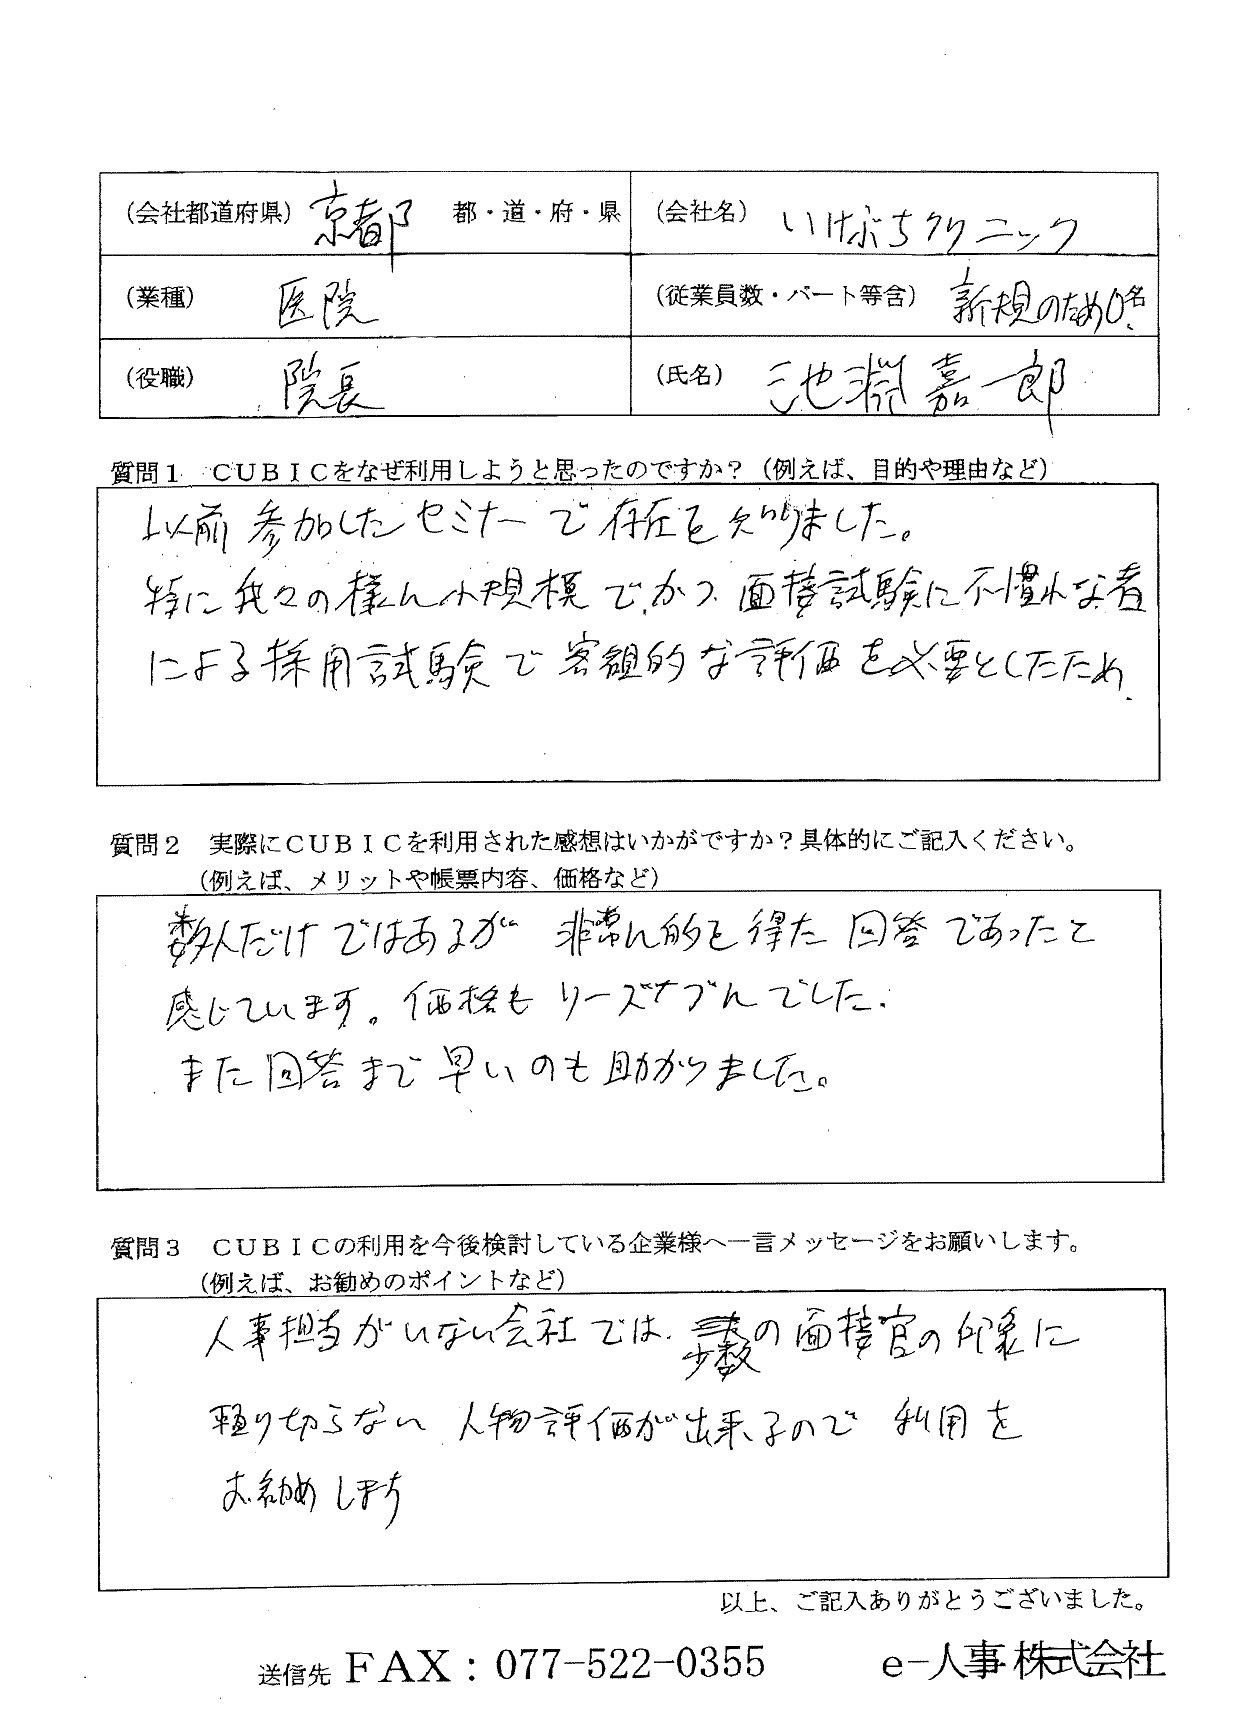 （会社都道府県） 京都 都・道・府・県 （会社名） いけぶちクリニック
（業種） 医院 （従業員数・パート等含） 新規のため0名
（役職） 院長 （氏名） 池淵嘉一郎
質問１　ＣＵＢＩＣをなぜ利用しようと思ったのですか？（例えば、目的や理由など）
以前参加したセミナーで存在を知りました。
特に我々の様な小規模で、かつ面接試験に不慣れな者
による採用試験で客観的な評価を必要としたため、
質問２　実際にＣＵＢＩＣを利用された感想はいかがですか？具体的にご記入ください。
（例えば、メリットや帳票内容、価格など）
数人だけではあるが 非常に的を得た回答であったと
感じています。価格もリーズナブルでした。
また回答まで早いのも助かりました。
質問３　ＣＵＢＩＣの利用を今後検討している企業様へ一言メッセージをお願いします。
（例えば、お勧めのポイントなど）
人事担当がいない会社では、少数の面接官の印象に
頼り切らない人物評価が出来るので利用を
お勧めします
以上、ご記入ありがとうございました。
送信先 ＦＡＸ：077-522-0355 e-人事株式会社